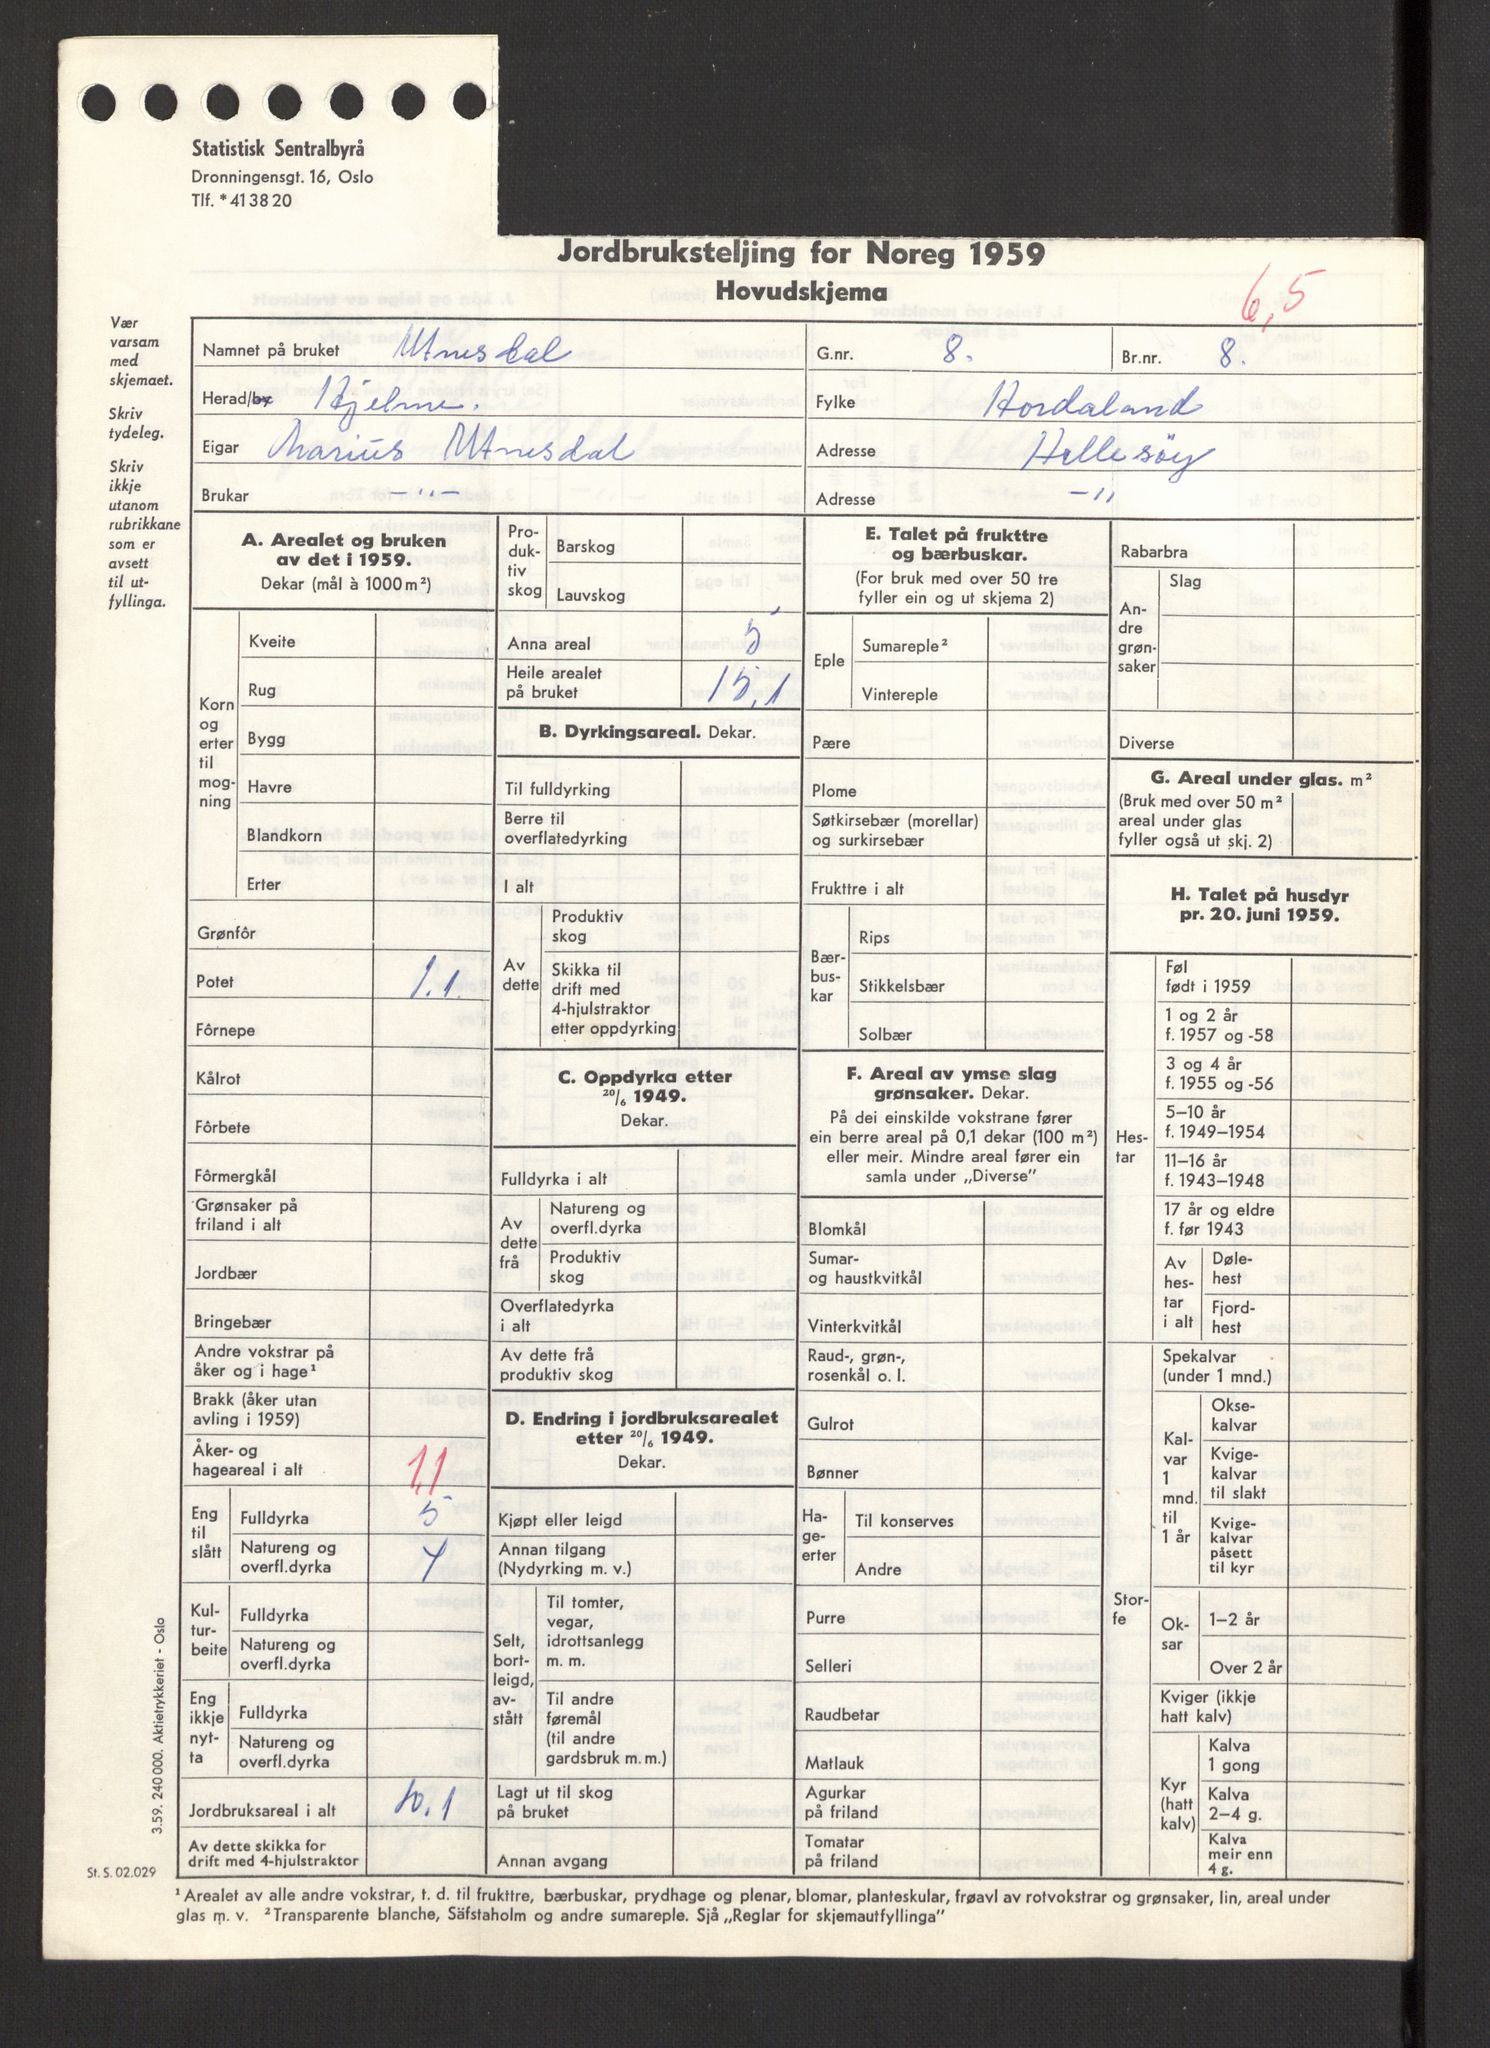 Statistisk Sentralbyrå
Dronningensgt. 16, Oslo
Tlf. *41 38 20
Jordbruksteljing for Noreg 1959
Hovudskjema
6,5
Vær
varsam
med
skjemaet.
Skriv
tydeleg.
Skriv
ikkje
utanom
rubrikkane
som er
avsett
til ut-
fyllinga.
Namnet på bruket Utnesdal G.nr. 8. Br.nr. 8.
Herad/by Hjelme. Fylke Hordaland
Eigar Marius Utnesdal Adresse Hellesöy
Brukar -"- Adresse -"
A. Arealet og bruken
av det i 1959.
Dekar (mål à 1000 m²)
Korn
og
erter
til
mog-
ning
Kveite
Rug
Bygg
Havre
Blandkorn
Erter
Grønfôr
Potet 1.1.
Fôrnepe
Kålrot
Fôrbete
Fôrmergkål
Grønsaker på
friland i alt
Jordbær
Bringebær
Andre vokstrar på
åker og i hage¹
Brakk (åker utan
avling i 1959)
Åker- og
hageareal i alt 1,1
Eng
til
slått
Fulldyrka 5
Natureng og
overfl.dyrka 4
Kul-
tur-
beite
Fulldyrka
Natureng og
overfl.dyrka
Eng
ikkje
nyt-
ta
Fulldyrka
Natureng og
overfl.dyrka
Jordbruksareal i alt 10.1
Av dette skikka for
drift med 4-hjulstraktor
Pro-
duk-
tiv
skog
Barskog
Lauvskog
Anna areal 5
Heile arealet
på bruket 15,1
B. Dyrkingsareal. Dekar.
Til fulldyrking
Berre til
overflatedyrking
I alt
Av
dette
Produktiv
skog
Skikka til
drift med
4-hjulstraktor
etter oppdyrking
C. Oppdyrka etter
20/6 1949.
Dekar.
Fulldyrka i alt
Av
dette
frå
Natureng og
overfl.dyrka
Produktiv
skog
Overflatedyrka
i alt
Av dette frå
produktiv skog
D. Endring i jordbruksarealet
etter 20/6 1949.
Dekar.
Kjøpt eller leigd
Annan tilgang
(Nydyrking m. v.)
Selt,
bort-
leigd,
av-
stått
Til tomter,
vegar,
idrottsanlegg
m. m.
Til andre
føremål
(til andre
gardsbruk m. m.)
Lagt ut til skog
på bruket
Annan avgang
E. Talet på frukttre
og bærbuskar.
(For bruk med over 50 tre
fyller ein og ut skjema 2)
Eple
Sumareple²
Vintereple
Pære
Plome
Søtkirsebær (morellar)
og surkirsebær
Frukttre i alt
Bær-
bus-
kar
Rips
Stikkelsbær
Solbær
F. Areal av ymse slag
grønsaker. Dekar.
På dei einskilde vokstrane fører
ein berre areal på 0,1 dekar (100 m²)
eller meir. Mindre areal fører ein
samla under „Diverse”
Blomkål
Sumar-
og haustkvitkål
Vinterkvitkål
Raud-, grøn-,
rosenkål o. l.
Gulrot
Bønner
Ha-
ge-
erter
Til konserves
Andre
Purre
Selleri
Raudbetar
Matlauk
Agurkar
på friland
Tomatar
på friland
Rabarbra
An-
dre
grøn-
saker
Slag
Diverse
G. Areal under glas. m²
(Bruk med over 50 m²
areal under glas
fyller også ut skj. 2)
H. Talet på husdyr
pr. 20. juni 1959.
Hes-
tar
Føl
født i 1959
1 og 2 år
f. 1957 og -58
3 og 4 år
f. 1955 og -56
5–10 år
f. 1949–1954
11–16 år
f. 1943–1948
17 år og eldre
f. før 1943
Av
hes-
tar
i alt
Døle-
hest
Fjord-
hest
Stor-
fe
Spekalvar
(under 1 mnd.)
Kal-
var
1
mnd.
til
1 år
Okse-
kalvar
Kvige-
kalvar
til slakt
Kvige-
kalvar
påsett
til kyr
Ok-
sar
1–2 år
Over 2 år
Kviger (ikkje
hatt kalv)
Kyr
(hatt
kalv)
Kalva
1 gong
Kalva
2–4 g.
Kalva
meir enn
4 g.
3.59. 240 000. Aktietrykkeriet - Oslo
St. S. 02.029
¹ Arealet av alle andre vokstrar, t. d. til frukttre, bærbuskar, prydhage og plenar, blomar, planteskular, frøavl av rotvokstrar og grønsaker, lin, areal under
glas m. v. ² Transparente blanche, Säfstaholm og andre sumareple. Sjå „Reglar for skjemautfyllinga”